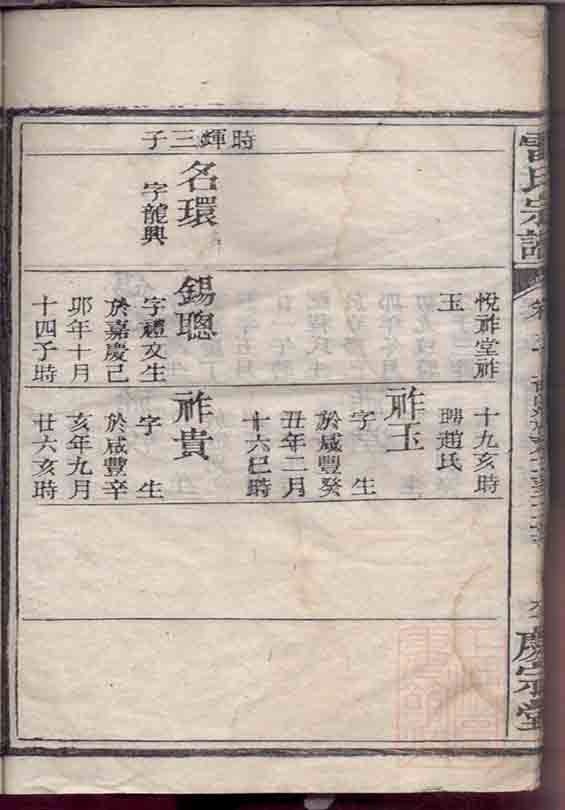 雷氏宗譜
慶宗堂
時輝三子
名環
字龍興
悅祚堂祚
玉
錫聰
字禮文生
於嘉慶己
卯年十月
十四子時
十九亥時
聘趙氏
祚玉
字 生
於咸豐癸
丑年二月
十六巳時
祚貴
字 生
於咸豐辛
亥年九月
廿六亥時